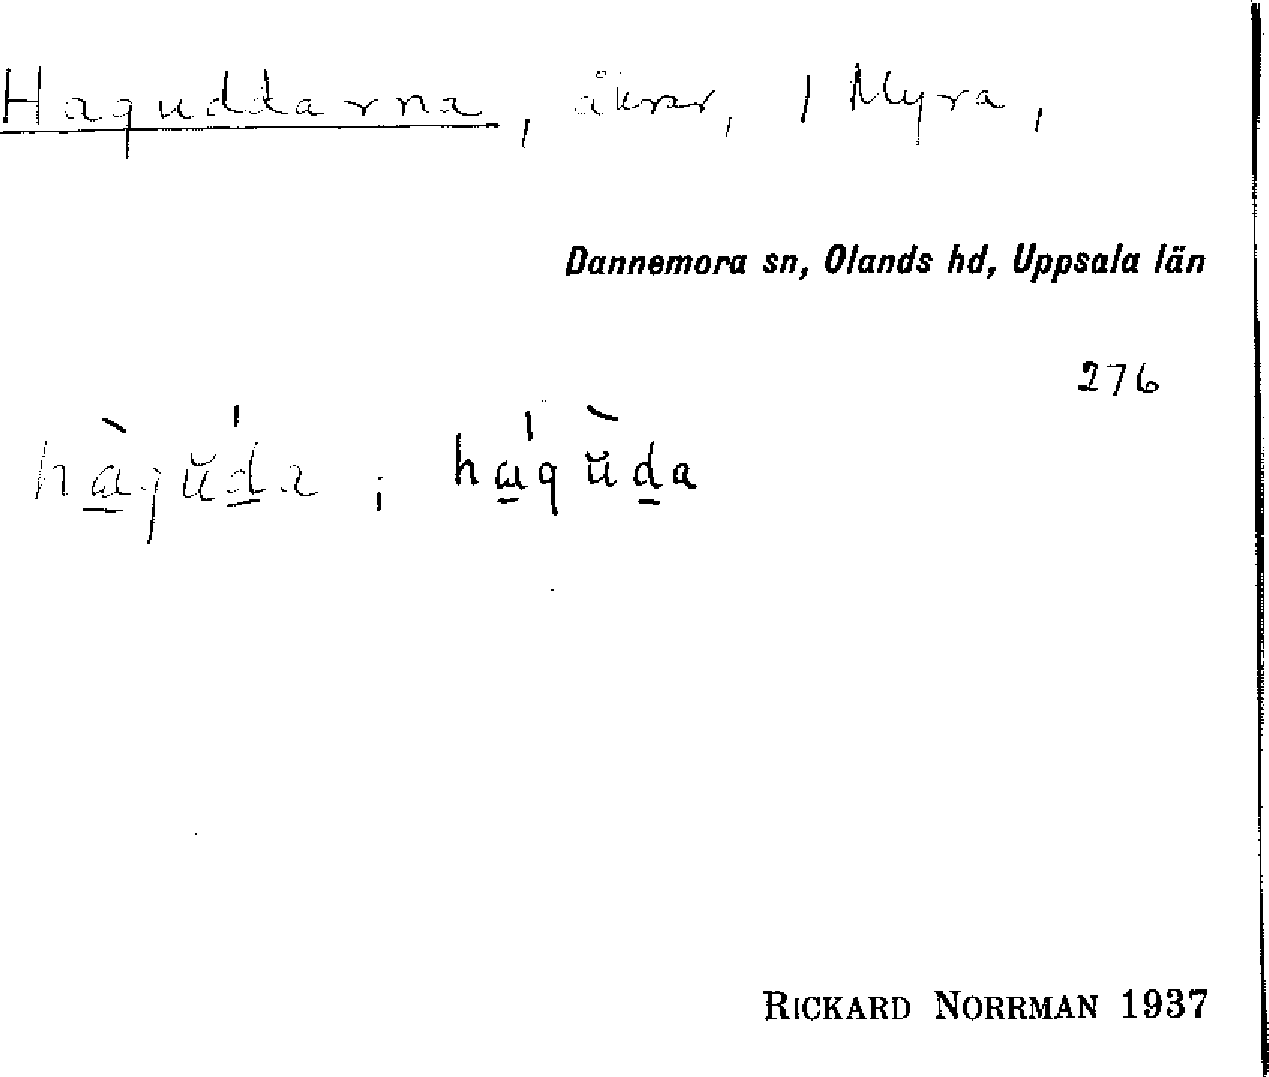 Haquddarna, åkrar, 1 Myra,
Dannemora sn, Olands hd, Uppsala län
276
Rickard Norrman 1937